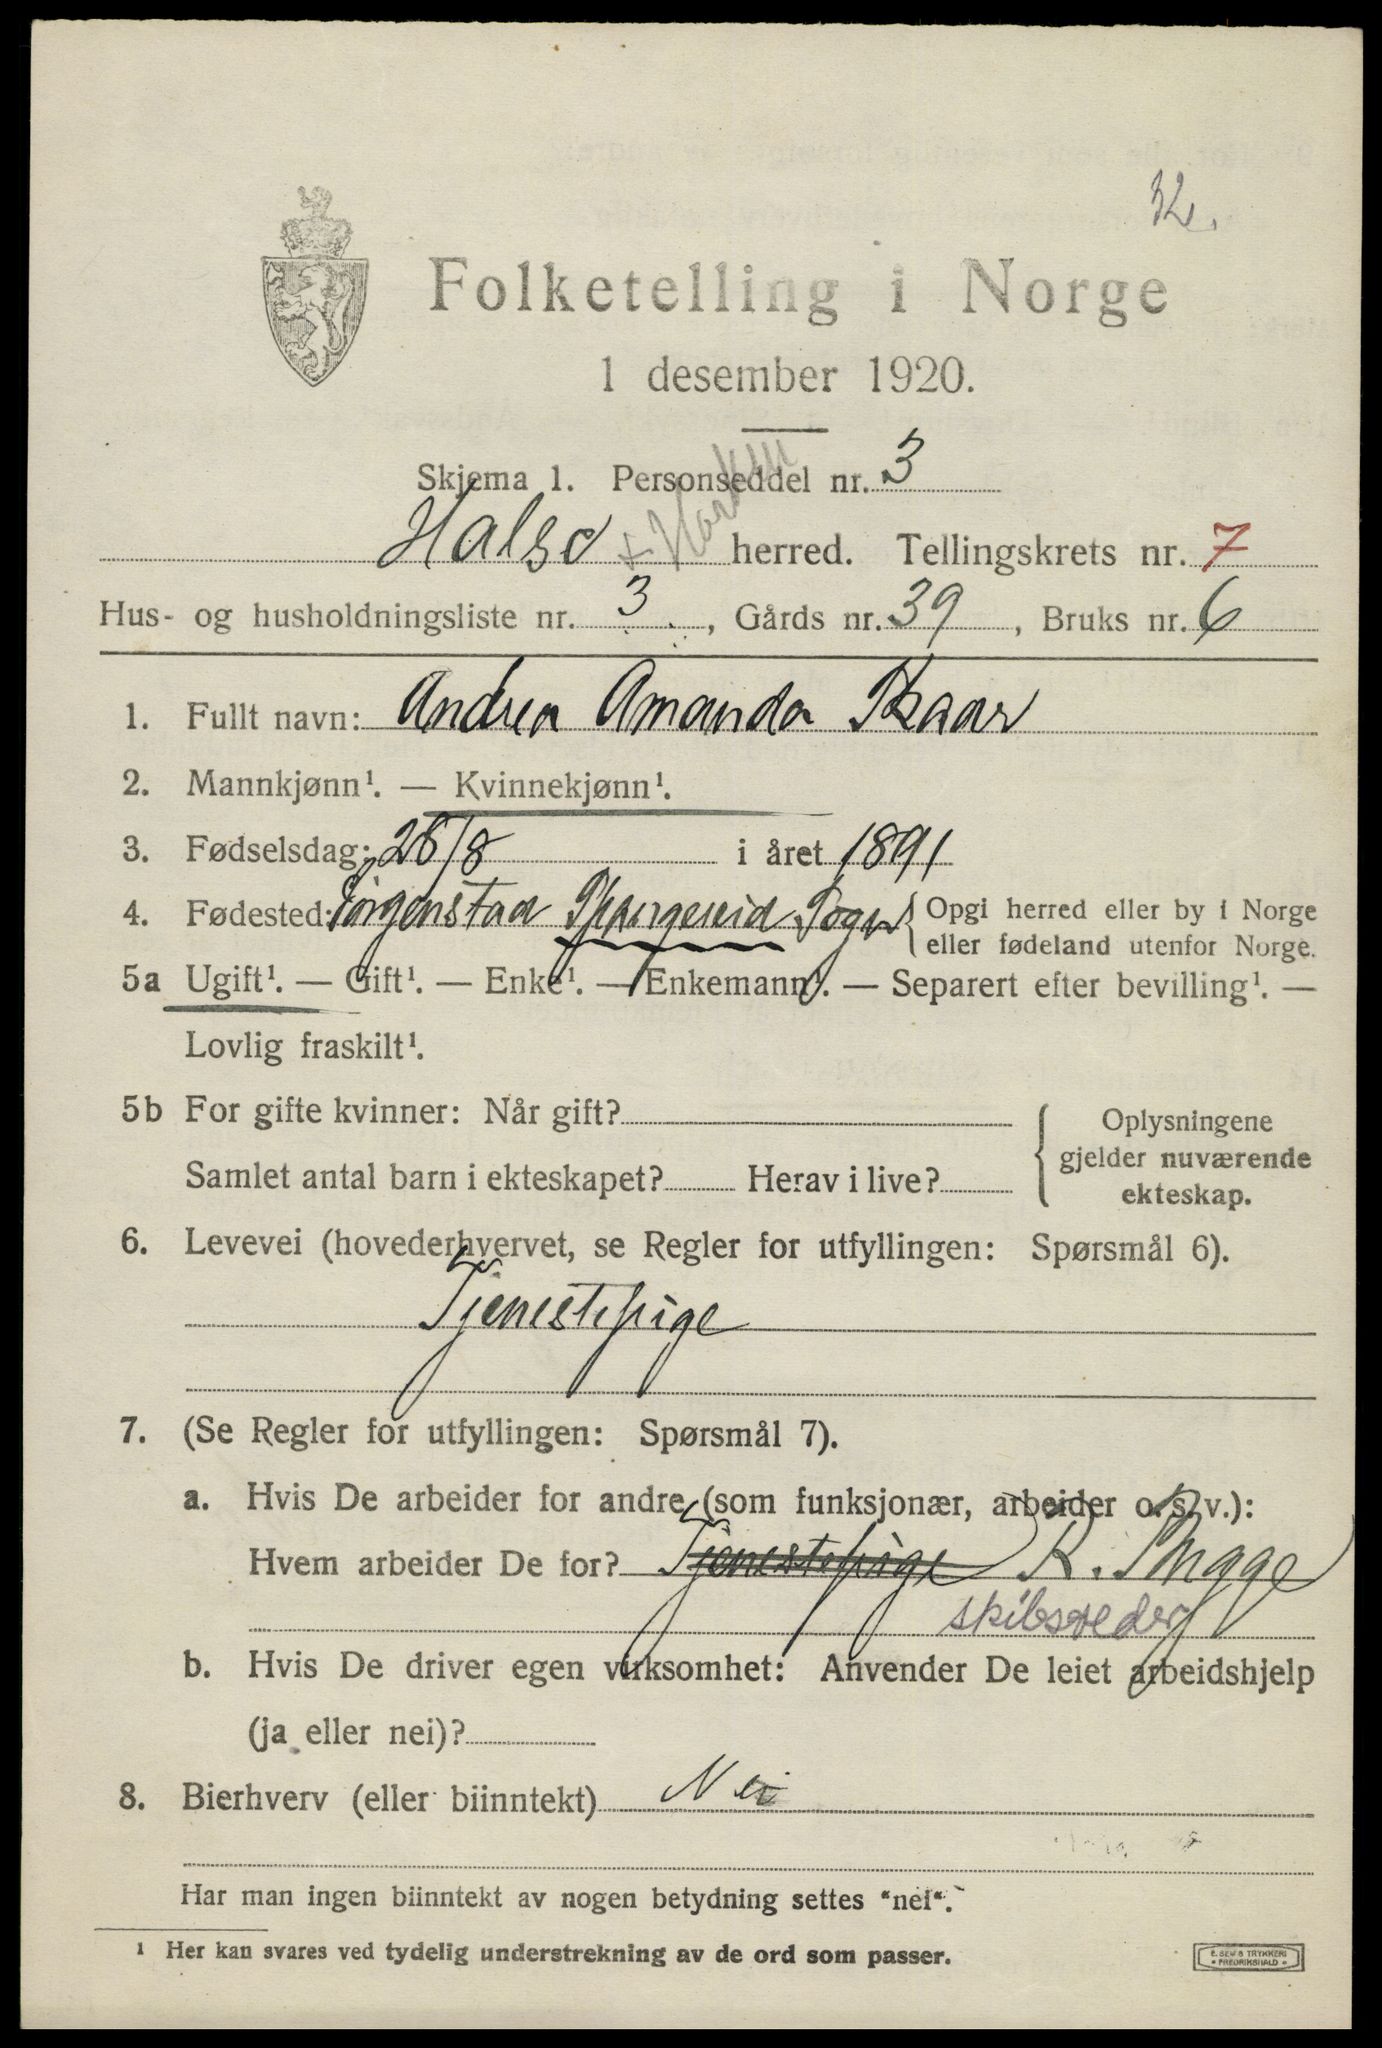 32.
Folketelling i Norge
1 desember 1920.
Skjema 1. Personseddel nr. 3
Halse + Harkm herred. Tellingskrets nr. 7
Hus- og husholdningsliste nr. 3, Gårds nr. 39, Bruks nr. 6
1. Fullt navn: Andrea Amanda Skaar
2. Mannkjønn¹. — Kvinnekjønn¹.
3. Fødselsdag: 28/8 i året 1891
4. Fødested: Jørgenstad Spangereid Sogn { Opgi herred eller by i Norge
eller fødeland utenfor Norge.
5a Ugift¹. — Gift¹. — Enke¹. — Enkemann¹. — Separert efter bevilling¹. —
Lovlig fraskilt¹.
5b For gifte kvinner: Når gift?
Samlet antal barn i ekteskapet? Herav i live?
{ Oplysningene
gjelder nuværende
ekteskap.
6. Levevei (hovederhvervet, se Regler for utfyllingen: Spørsmål 6).
Tjenestepige
7. (Se Regler for utfyllingen: Spørsmål 7).
a. Hvis De arbeider for andre (som funksjonær, arbeider o. s. v.):
Hvem arbeider De for? Tjenestepige R. Brygge
skibsreder
b. Hvis De driver egen virksomhet: Anvender De leiet arbeidshjelp
(ja eller nei)?
8. Bierhverv (eller biinntekt) Nei
Har man ingen biinntekt av nogen betydning settes "nei".
¹ Her kan svares ved tydelig understrekning av de ord som passer.
E. SEMS TRYKKERI
• FREDRIKSHALD •